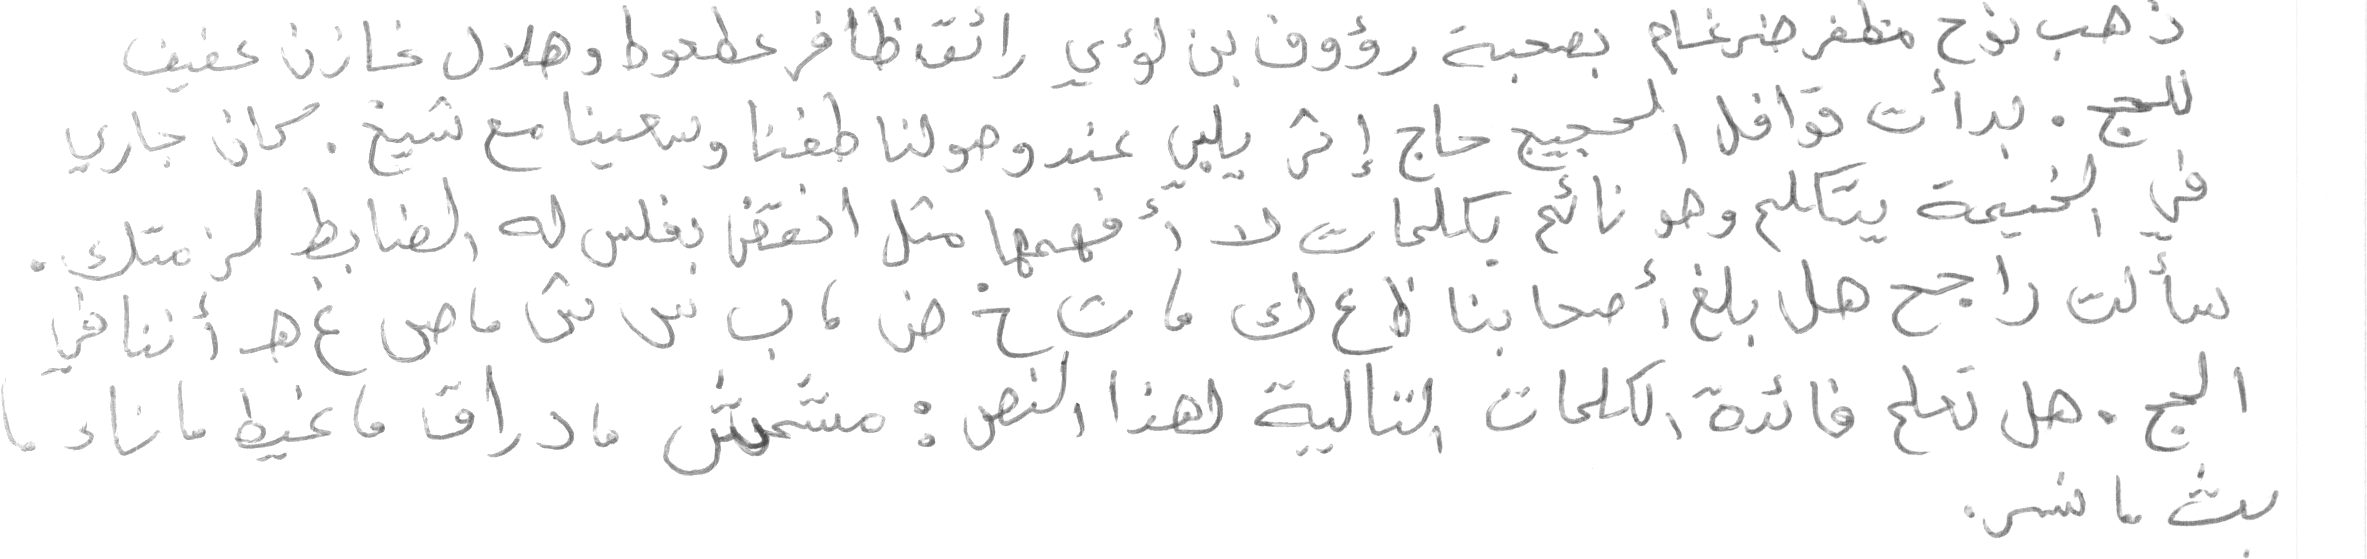 ذهب نوح مظفر ضرغام بصحبة رؤوف بن لؤي رائق ظافر عطعوط وهلال غازن عفيف
للحج . بدأت قوافل الحجيج حاج إثر يلبي عند وصولنا طفنا وسعينا مع شيخ . كان جاري
في الخيمة يتكلم وهو نائم بكلمات لا أفهمها مثل انفقض بغلس له الضابط لزمتك .
سألت راجح هل بلغ أصحابنا ظ ع ك ، ت خ ض ، ب س ش ، ص غ هـ أننا في
الحج . هل تعلم فائدة الكلمات التالية لهذا النص : مشمش ، دراق ، غيظ ، ناء ،
بث ، نسر .